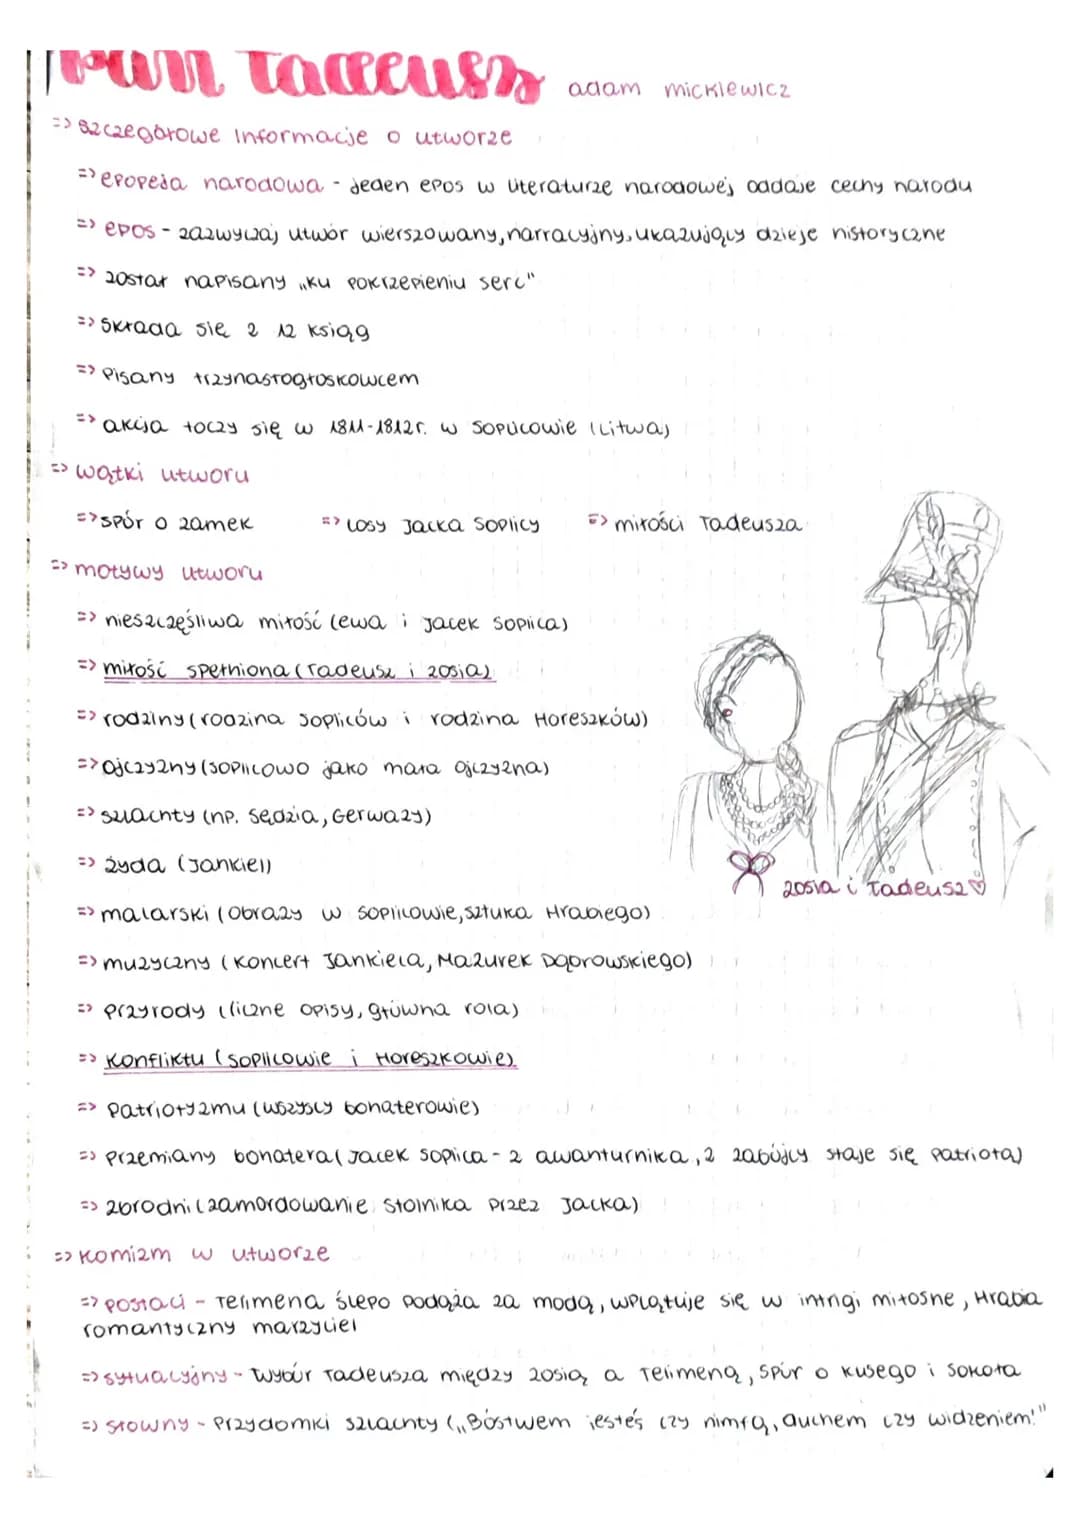 Pan Tadeusz adam mickiewicz
=> szczegółowe informacje o utworze
=> epopeja narodowa - jeden epos w literaturze narodowej oddaje cechy narodu
=> epos - zazwyczaj utwór wierszowany, narracyjny, ukazujący dzieje historyczne
=> został napisany „ku pokrzepieniu serc"
=> składa się z 12 ksiąg
=> pisany trzynastogłoskowcem
=> akcja toczy się w 1811-1812r. w Soplicowie (Litwa)
=> wątki utworu
=> spór o zamek => losy Jacka Soplicy => miłości Tadeusza
=> motywy utworu
=> nieszczęśliwa miłość (ewa i Jacek Soplica)
=> miłość spełniona (Tadeusz i Zosia)
=> rodziny (rodzina Sopliców i rodzina Horeszków)
=> ojczyzny (Soplicowo jako mała ojczyzna)
=> szlachty (np. Sędzia, Gerwazy)
=> żyda (Jankiel)
zosia i Tadeusz ♡
=> malarski (obrazy w Soplicowie, sztuka Hrabiego)
=> muzyczny (koncert Jankiela, Mazurek Dąbrowskiego)
=> przyrody (liczne opisy, główna rola)
=> konfliktu (Soplicowie i Horeszkowie)
=> patriotyzmu (wszyscy bohaterowie)
=> przemiany bohatera (Jacek Soplica - z awanturnika, z zabójcy staje się patriotą)
=> zbrodni (zamordowanie Stolnika przez Jacka)
=> komizm w utworze
=> postaci - Telimena ślepo podąża za modą, wplątuje się w intrygi miłosne, Hrabia
romantyczny marzyciel
=> sytuacyjny - wybór Tadeusza między Zosią a Telimeną, spór o Kusego i Sokoła
=> słowny - przydomki szlachty („Bóstwem jesteś czy nimfą, duchem czy widzeniem!"